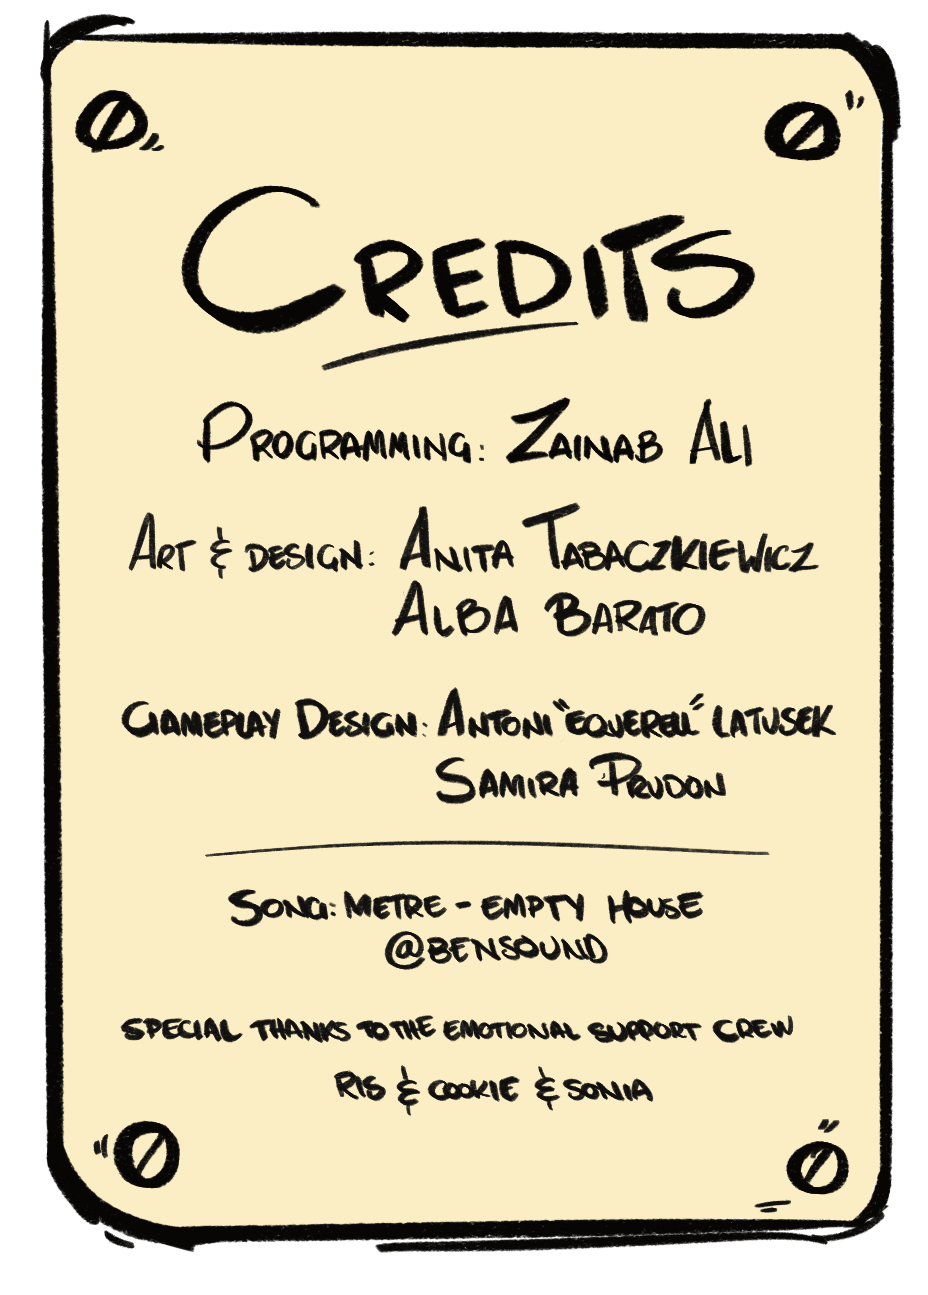 CREDITS
PROGRAMMING: ZAINAB ALI
ART & DESIGN: ANITA TABACZKIEWICZ
ALBA BARATO
GAMEPLAY DESIGN: ANTONI "EQUERELL" LATUSEK
SAMIRA PRUDON
SONG: METRE - EMPTY HOUSE
@BENSOUND
SPECIAL THANKS TO THE EMOTIONAL SUPPORT CREW
RIS & COOKIE & SONIA